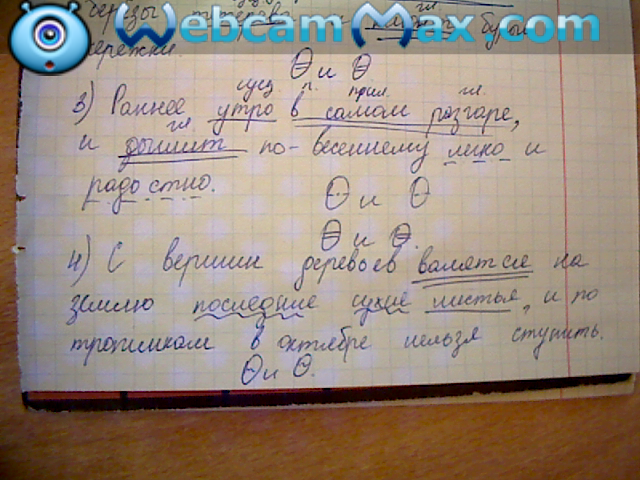 WebcamMax.com
березы
гл.
бурые
сережки.
Θ и Θ
сущ. п. прил. гл.
3) Раннее утро в самом разгаре,
гл.
и дышит по-весеннему легко и
радостно.
Θ и Θ
Θ и Θ.
4) С вершин деревьев валятся на
землю последние сухие листья, и по
тропинкам в октябре нельзя ступить.
Θ и Θ.